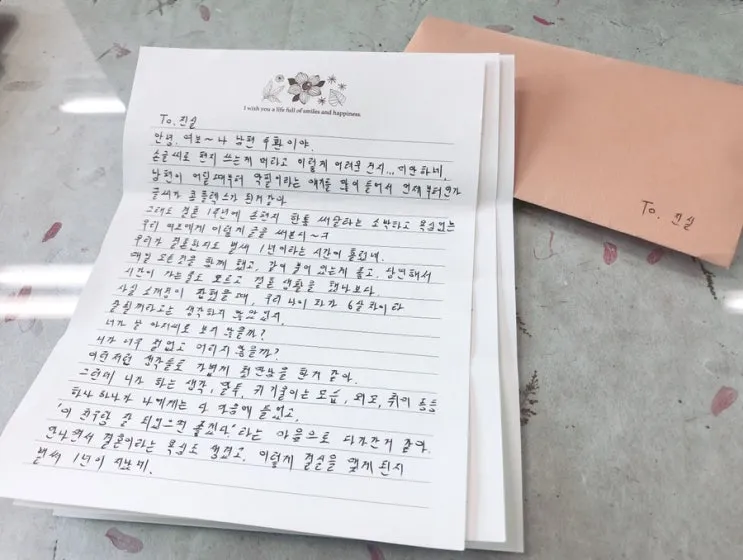 I wish you a life full of smiles and happiness.
To. 진실
안녕, 여보~ 나 남편 주환이야.
손글씨로 편지 쓰는게 뭐라고 이렇게 어려운건지... 미안하네.
남편이 어릴때부터 악필이라는 얘기를 많이 들어서 언제부턴가
글씨가 콤플렉스가 된거같아
그래도 결혼 1주년에 손편지 한통 써달라는 소박하고 욕심없는
우리 여보에게 이렇게 글을 써보지~ㅋ
우리가 결혼한지도 벌써 1년이라는 시간이 흘렀네.
매일 모든것을 함께 했고, 같이 붙어 있는게 좋고, 당연해서
시간이 가는줄도 모르고 결혼 생활을 했나보다.
사실 소개팅이 잡혔을 때, 우리 나이 차가 6살 차이라
잘될꺼라고는 생각하지 않았었지.
너가 날 아저씨로 보지 않을까?
너가 너무 철없고 어리지 않을까?
이런저런 생각들로 가볍게 첫만남을 한거 같아.
그런데 너가 하는 생각, 말투, 귀 기울이는 모습, 외모, 취미 등등
하나하나가 나에게는 다 마음에 들었고,
'이 친구랑 잘 되었으면 좋겠다.' 라는 마음으로 다가간거 같아.
만나면서 결혼이라는 욕심도 생겼고, 이렇게 결실을 맺게 된지
벌써 1년이 지났네.
To. 진실